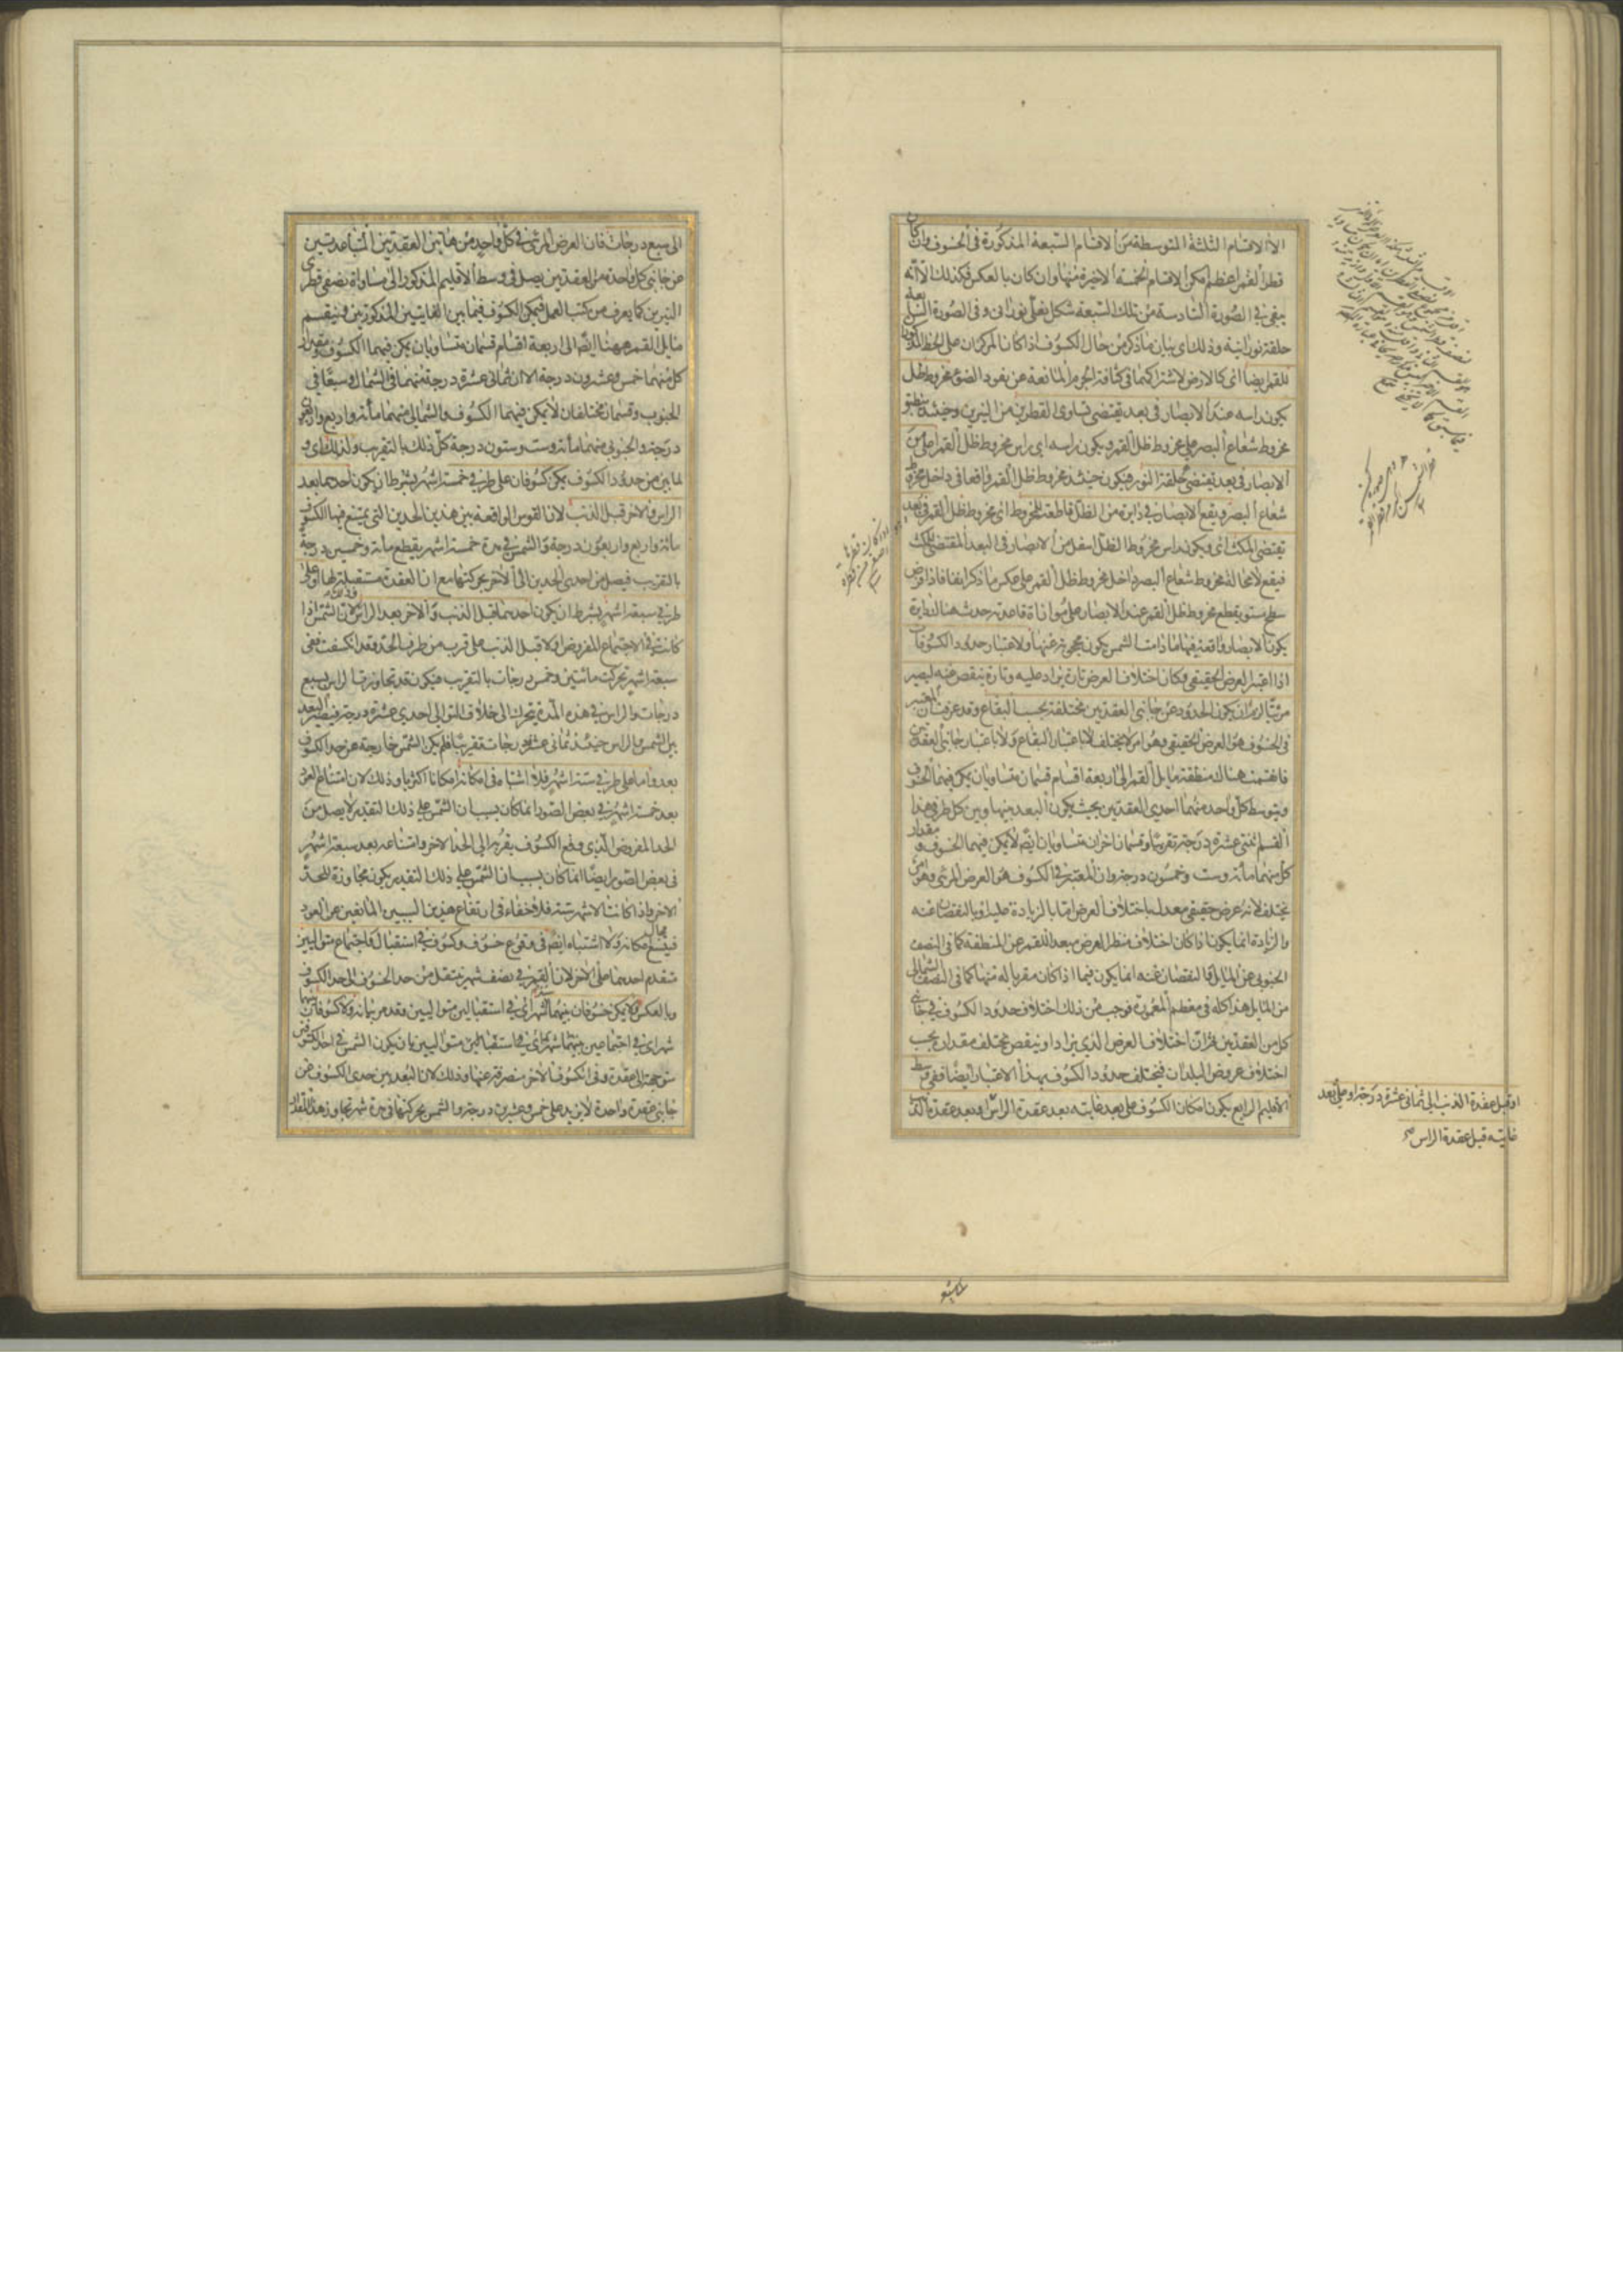 الا الاقسام الثلثة المتوسطة من الاقسام السبعة المذكورة فى الخسوف وان كان
قطر القمر اعظم امكن الاقسام الخمسة الاخيرة منها وان كان بالعكس فكذلك الا انه
يبقى فى الصورة السادسة من تلك السبعة شكل نعلى نورانى وفى الصورة السابعة
حلقة نورانية وذلك اى بيان ما ذكر من حال الكسوف اذا كانا المركزان على الخط المذكور
للقمر ايضا اى كالارض لاشتراكهما فى كثافة الجرم المانعة عن نفوذ الضوء مخروط ظل
يكون راسه عند الابصار فى بعد يقتضى تساوى القطرين من النيرين وحينئذ ينطبق
مخروط شعاع البصر على مخروط ظل القمر ويكون راسه اى راس مخروط ظل القمر اعلى من
الابصار فى بعد يقتضى حلقة النور فيكون حينئذ مخروط ظل القمر واقعا فى داخل مخروط
شعاع البصر ويقع الابصار فى دايرة من الظل قاطعة للمخروط اى مخروط ظل القمر فى بعد
يقتضى المكث اى ويكون راس مخروط الظل اسفل من الابصار فى البعد المقتضى للمكث
فيقع لا محالة مخروط شعاع البصر داخل مخروط ظل القمر على عكس ما ذكر انفا فاذا فرض
سطح مستو يقطع مخروط ظل القمر عند الابصار على موازاة قاعدته حدث هنا دايرة
يكون الابصار واقعة فيها ما دامت الشمس يكون محجوبة عنها ولاعتبار حدود الكسوفات
اذا اعتبر العرض الحقيقى فكان اختلاف العرض تارة يزاد عليه وتارة ينقص عنه ليصير
مرئيا لزم ان يكون الحدود عن جانبى العقدتين مختلفة بحسب البقاع وقد عرفت ان المعتبر
فى الخسوف هو العرض الحقيقى وهو امر لا يختلف لا باعتبار البقاع ولا باعتبار جانبى العقدتين
فانقسمت هناك منطقة مايل القمر الى اربعة اقسام قسمان متساويان يمكن فيهما الخسوف
ويتوسط كل واحد منهما احدى العقدتين بحيث يكون البعد بينها وبين كل طرفى هذا
القسم اثنتى عشرة درجة تقريبا وقسمان اخران متساويان ايضا لا يمكن فيهما الخسوف ومقدار
كل منهما مائة وست وخمسون درجة وان المعتبر فى الكسوف هو العرض المرئى وهو امر
يختلف لانه عرض حقيقى معدل باختلاف العرض اما بالزيادة عليه او بالنقصان عنه
والزيادة انما يكون اذا كان اختلاف منظر العرض مبعدا للقمر عن المنطقة كما فى النصف
الجنوبى من المايل والنقصان عنه انما يكون فيما اذا كان مقربا له منها كما فى النصف الشمالى
من المايل هذا كله فى معظم المعمورة فوجب من ذلك اختلاف حدود الكسوف فى جانبى
كل من العقدتين ثم ان اختلاف العرض الذى يزاد او ينقص مختلف مقداره بحسب
اختلاف عروض البلدان فيختلف حدود الكسوف بهذا الاعتبار ايضا ففى وسط
الاقليم الرابع يكون امكان الكسوف على بعد غايته بعد عقدة الراس وبعد عقدة الذنب
او قبل عقدة الذنب الى ثمانى عشرة درجة او على بعد
غايته قبل عقدة الراس صح
الى سبع درجات فان العرض المرئى فى كل واحد من هاتين العقدتين المتباعدتين
عن جانبى كل واحدة من العقدتين يصل فى وسط الاقليم المذكور الى مساواة نصفى قطرى
النيرين كما يعرف من كتب العمل فيمكن الكسوف فيما بين الغايتين المذكورتين فينقسم
مايل القمر ههنا ايضا الى اربعة اقسام قسمان متساويان يمكن فيهما الكسوف ومقدار
كل منهما خمس وعشرون درجة الا ان ثمانى عشرة درجة منهما فى الشمال وسبعا فى
الجنوب وقسمان مختلفان لا يمكن فيهما الكسوف والشمالى منهما مائة واربع واربعون
درجة والجنوبى منهما مائة وست وستون درجة كل ذلك بالتقريب ولذلك اى و
لما بين من حدود الكسوف يمكن كسوفان على طرفى خمسة اشهر بشرط ان يكون احدهما بعد
الراس والاخر قبل الذنب لان القوس الواقعة بين هذين الحدين التى يمتنع فيها الكسوف
مائة واربع واربعون درجة والشمس فى مدة خمسة اشهر يقطع مائة وخمسين درجة
بالتقريب فيصل من احدى الحدين الى الاخر بحركتها مع ان العقدة مستقبلة لها او على
طرفى سبعة اشهر بشرط ان يكون احدهما قبل الذنب والاخر بعد الراس لان الشمس اذا
كانت فى الاجتماع المفروض اولا قبل الذنب على قرب من طرف الحد وقد انكسفت ففى
سبعة اشهر تحركت مائتين وخمس درجات بالتقريب فيكون قد تجاوزت الراس بسبع
درجات والراس فى هذه المدة يتحرك الى خلاف التوالى احدى عشرة درجة فيصير البعد
بين الشمس والراس حينئذ ثمانى عشرة درجات تقريبا فلم يكن الشمس خارجة عن حد الكسوف
بعد واما على طرفى ستة اشهر فلا اشتباه فى امكانه امكانا اكثريا وذلك لان امتناع العود
بعد خمسة اشهر فى بعض الصور انما كان بسبب ان الشمس على ذلك التقدير لا يصل من
الحد المفروض الذى وقع الكسوف بقربه الى الحد الاخر وامتناعه بعد سبعة اشهر
فى بعض الصور ايضا انما كان بسبب ان الشمس على ذلك التقدير يكون مجاوزة للحد
الاخر واذا كانت الاشهر ستة فلا خفاء فى ارتفاع هذين السببين المانعين عن العود
فيتسع مجال امكانه ولا اشتباه ايضا فى وقوع خسوف وكسوف فى استقبال واجتماع متواليين
تقدم احدهما على الاخر لان القمر فى نصف شهر ينتقل من حد الخسوف الى حد الكسوف
وبالعكس ولا يمكن خسوفان بينهما شهر اى فى استقبالين متواليين وقد مر بيانه ولا كسوفان بينهما
شهر اى فى اجتماعين متواليين بان يكون الشمس فى احد الكسوفين
متوجهة الى عقدة وفى الكسوف الاخر منصرفة عنها وذلك لان البعد بين حدى الكسوف عن
جانبى عقدة واحدة لا يزيد على خمس وعشرين درجة والشمس بحركتها فى مدة شهر تجاوز هذا المقدار